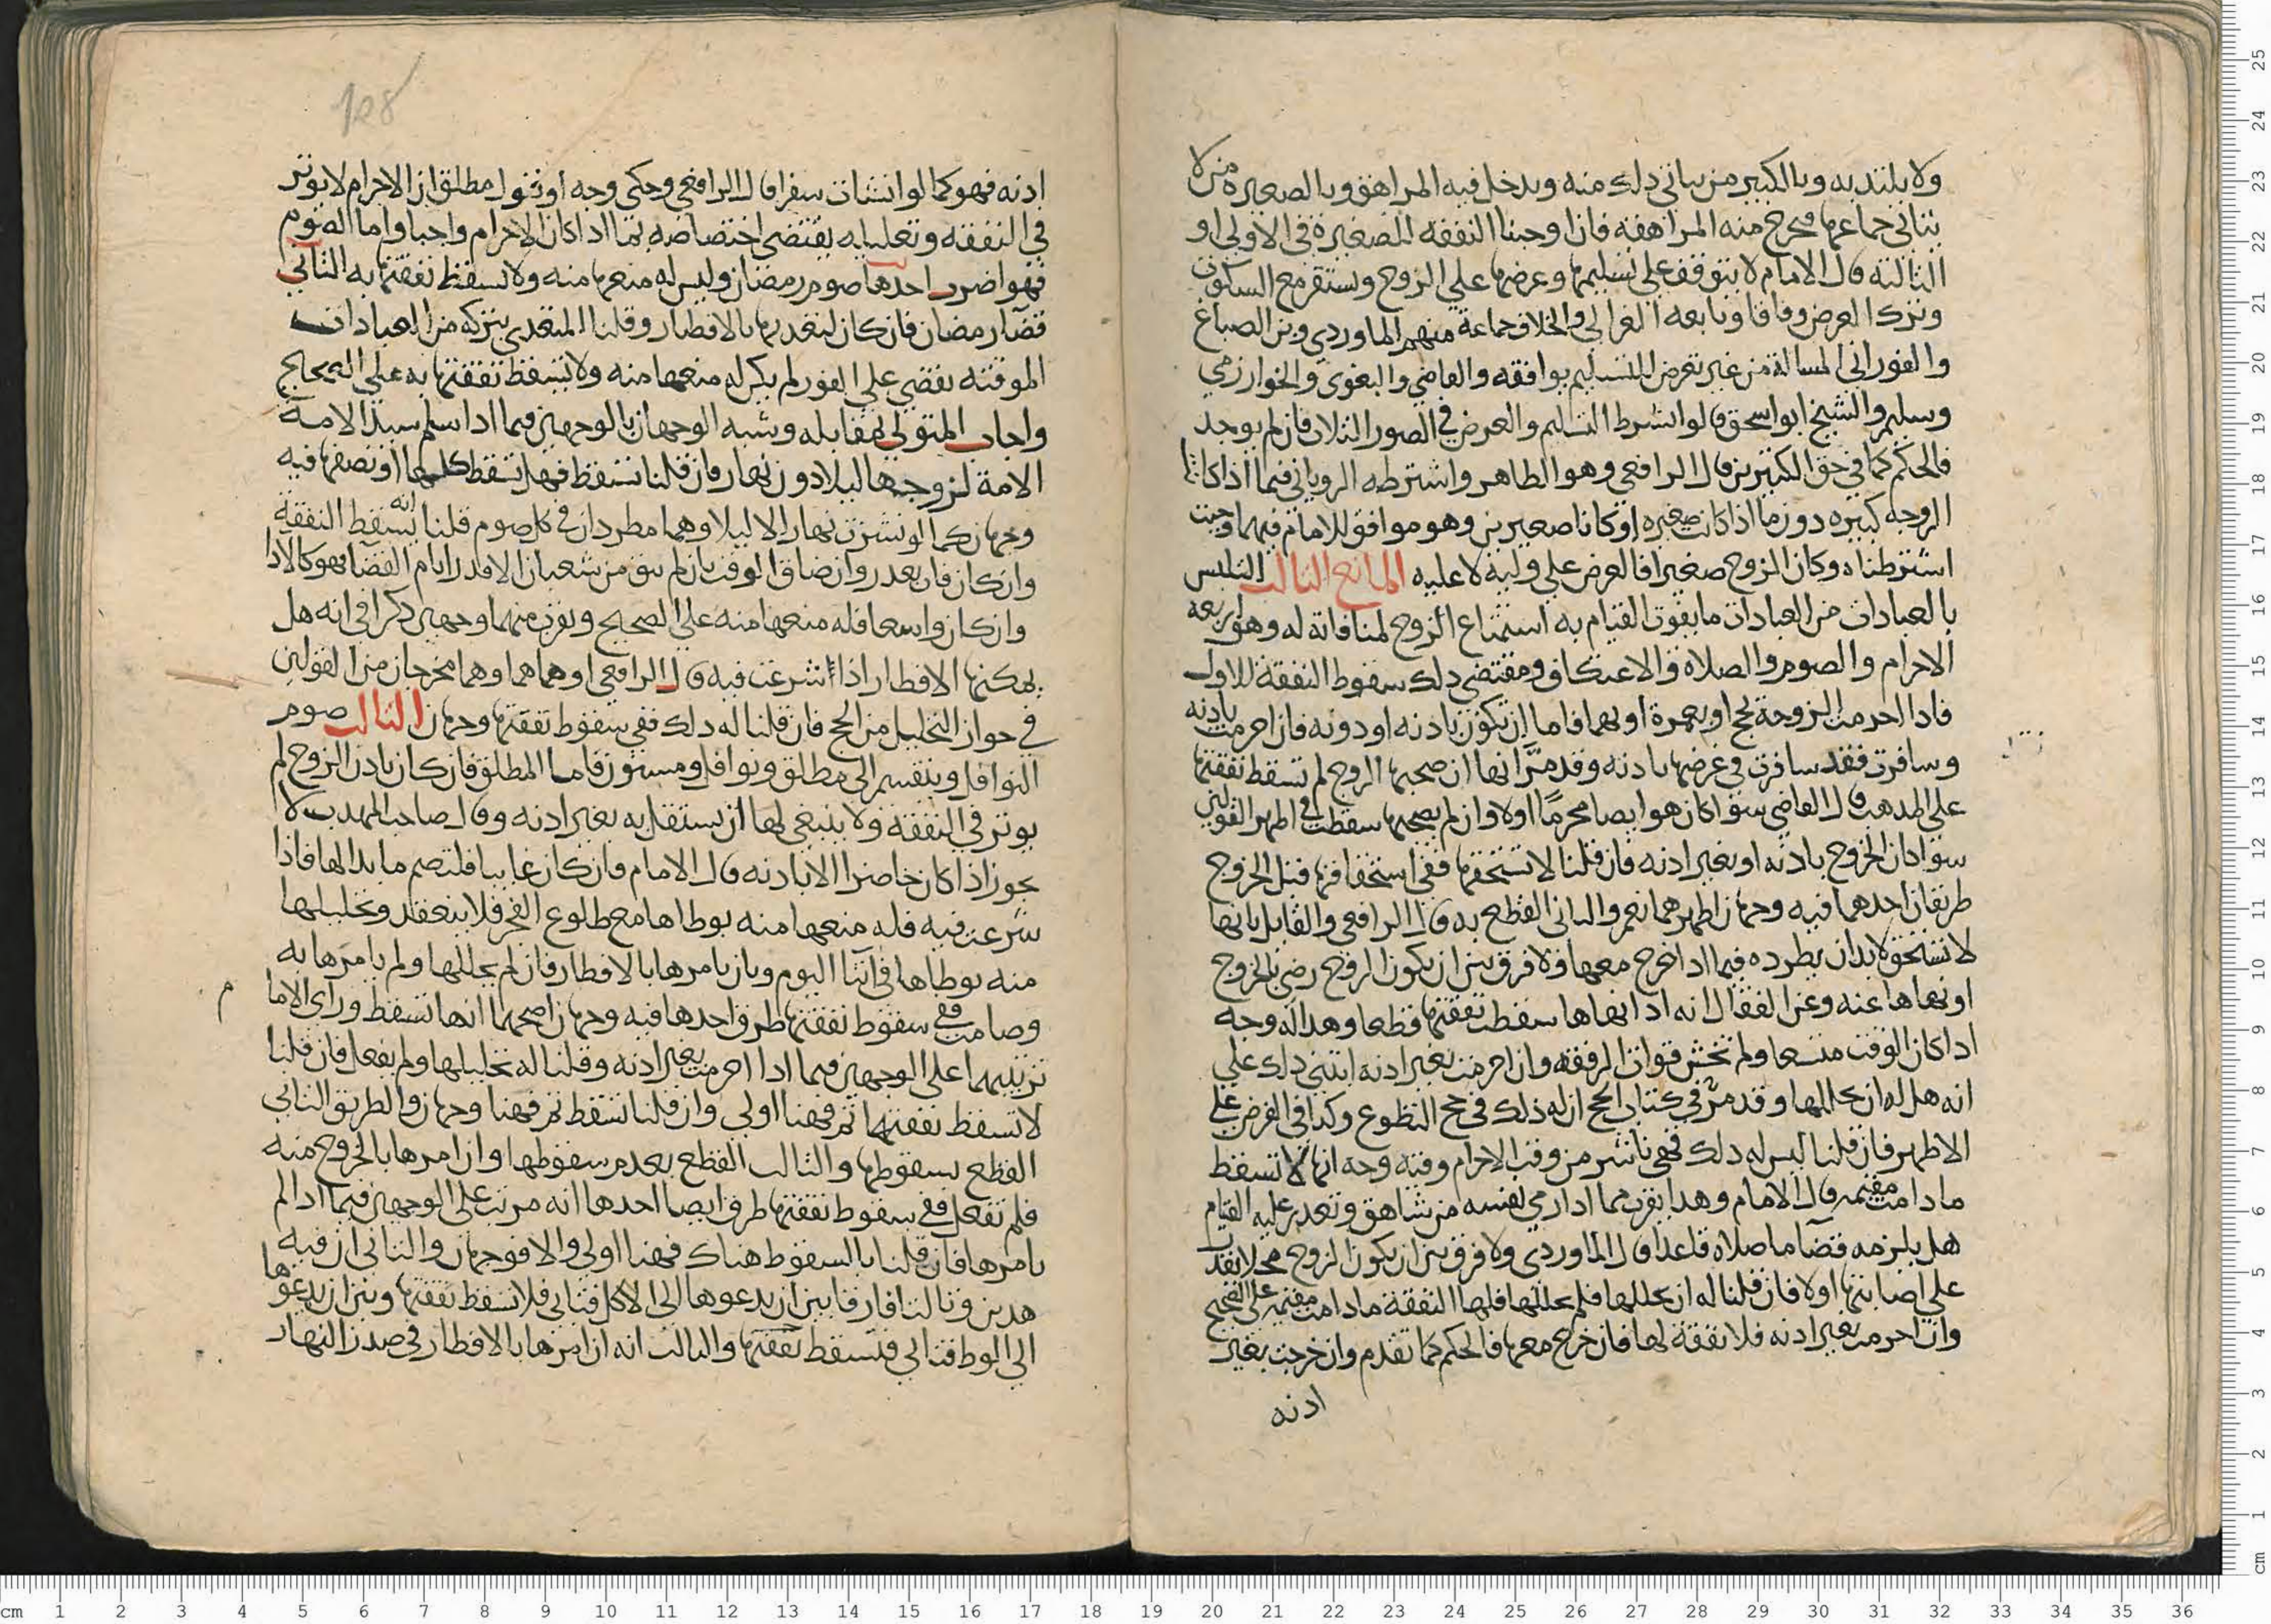 ولا يلتد به وبالكبير من يتاتي دلك منه ويدخل فيه المراهق وبالصغيره من لا
يتاتي جماعها مخرج منه المراهقه فاذا وجبنا النفقه للصغيرة في الاولي او
الثالثه قال الامام لا يتوقف علي تسليمها وعرضها علي الزوج وتستقر مع السكون
وترك العرض وفاقا وتابعه الغزالي والخلاف جماعة منهم الماوردي وبن الصباغ
والفوراني المسالة من غير تعرض للتسليم يوافقه والقاضي والبغوي والخوارزمي
وسليم والشيخ ابو اسحق قالوا الشرط التسليم والعرض في الصور الثلاث فان لم يوجد
فالحكم كما في حق الكبيرين قال الرافعي وهو الظاهر واشترطه الروياني فيما اذا كانت
الزوجه كبيره دون ما اذا كانت صغيره او كانا صغيرين وهو موافق للامام فيهما وحيث
اشترطناه وكان الزوج صغيرا فالعرض علي وليه لا عليه المانع الثالث التلبس
بالعبادات من العبادات ما يفوت القيام به استمتاع الزوج لمنافاته له وهو اربعه
الاحرام والصوم والصلاة والاعتكاف ومقتضي دلك سقوط النفقة للاول
فادا احرمت الزوجة بحج او بعمرة او بهما فاما ان تكون باذنه او دونه فان احرمت باذنه
وسافرت فقد سافرت في غرضها باذنه وقد مر انها ان صحبها الزوج لم تسقط نفقتها
علي المدهب قال القاضي سوا كان هو ايضا محرما او لا وان لم يصحبها سقطت في اظهر القولين
سوا كان الخروج باذنه او بغير اذنه فان قلنا لا تستحقها ففي استحقاقها قبل الخروج
طريقان احدهما فيه وجهان اظهرهما نعم والثاني القطع به قال الرافعي والقايل بانها
لا تستحق لا بد ان يطرده فيما ادا خرج معها ولا فرق بين ان يكون الزوج رضي بالخروج
او نهاها عنه وعن القفال انه ادا نهاها سقطت نفقتها قطعا وهدا له وجه
ادا كان الوقت متسعا ولم تخش فوات الرفقه وان احرمت بغير اذنه ابتني دلك علي
انه هل له ان يحللها وقد مر في كتاب الحج ان له ذلك في حج التطوع وكدا في الفرض علي
الاظهر فان قلنا ليس له دلك فهي ناشز من وقت الاحرام وفيه وجه انها لا تسقط
ما دامت مقيمه قال الامام وهدا يقرب مما ادا رمي لنفسه من شاهق وتعدر عليه القيام
هل يلزمه قضا ما صلاه قاعدا قال الماوردي ولا فرق بين ان يكون الزوج محلا يقدر
علي اصابتها او لا فان قلنا له ان يحللها فلم يحللها فلها النفقة ما دامت مقيمه علي الصحيح
وان احرمت بغير اذنه فلا نفقة لها فان خرج معها فالحكم كما تقدم وان خرجت بغير
ادنه
128
ادنه فهو كما لو انشات سفرا قال الرافعي وحكي وجه او قول مطلق ان الاحرام لا يوثر
في النفقه وتعليله يقتضي اختصاصه بما ادا كان الاحرام واجبا واما الصوم
فهو اضرب احدها صوم رمضان وليس له منعها منه ولا تسقط نفقتها به الثاني
قضا رمضان فان كان لتعديها بالافطار وقلنا المتعدي بتركه من العبادات
الموقته يقضي علي الفور لم يكن له منعها منه ولا تسقط نفقتها به علي الصحيح
واجاب المتولي بمقابله وشبه الوجهان بالوجهين فيما ادا سلم سيد الامة
الامة لزوجها ليلا دون نهار فان قلنا تسقط فهل تسقط كلها او نصفها فيه
وجهان كما لو نشزت نهارا لا ليلا وهما مطردان في كل صوم قلنا انه يسقط النفقة
وان كان فات بعدر وان ضاق الوقت بان لم يبق من شعبان الا قدر ايام القضا فهو كالادا
وان كان واسعا فله منعها منه علي الصحيح ويقرب منهما وجهين دكرا في انه هل
يمكنها الافطار اذا شرعت فيه قال الرافعي او هما هما وهما مخرجان من القولين
في جواز التحليل من الحج فان قلنا له دلك ففي سقوط نفقتها وجهان الثالث صوم
النوافل وينقسم الي مطلق ونوافل ومسنون فاما المطلق فان كان باذن الزوج لم
يوثر في النفقه ولا ينبغي لها ان تستقل به بغير اذنه وقال صاحب المهدب لا
يجوز اذا كان حاضرا الا باذنه قال الامام فان كان غايبا فلتصم ما بدا لها فاذا
شرعت فيه فله منعها منه بوطاها مع طلوع الفجر فلا ينعقد وتحليلها
منه بوطاها في اثنا اليوم وبان يامرها بالافطار فان لم يحللها ولم يامرها به
وصامت ففي سقوط نفقتها طرق احدها فيه وجهان اصحهما انها تسقط وراي الاما م
ترتيبهما علي الوجهين فيما ادا احرمت بغير اذنه وقلنا له تحليلها ولم يفعل فان قلنا
لا تسقط نفقتها ثم فههنا اولي وان قلنا تسقط ثم فههنا وجهان والطريق الثاني
القطع بسقوطها والثالث القطع بعدم سقوطها وان امرها بالخروج منه
فلم تفعل ففي سقوط نفقتها طرق ايضا احدها انه مرتب علي الوجهين فيما ادا لم
يامرها فان قلنا بالسقوط هناك فههنا اولي والا فوجهان والثاني ان فيه
هدين وثالثا فارقا بين ان يدعوها الي الاكل فتابي فلا تسقط نفقتها وبين ان يدعوها
الي الوط فتابي فتسقط نفقتها والثالث انه ان امرها بالافطار في صدر النهار